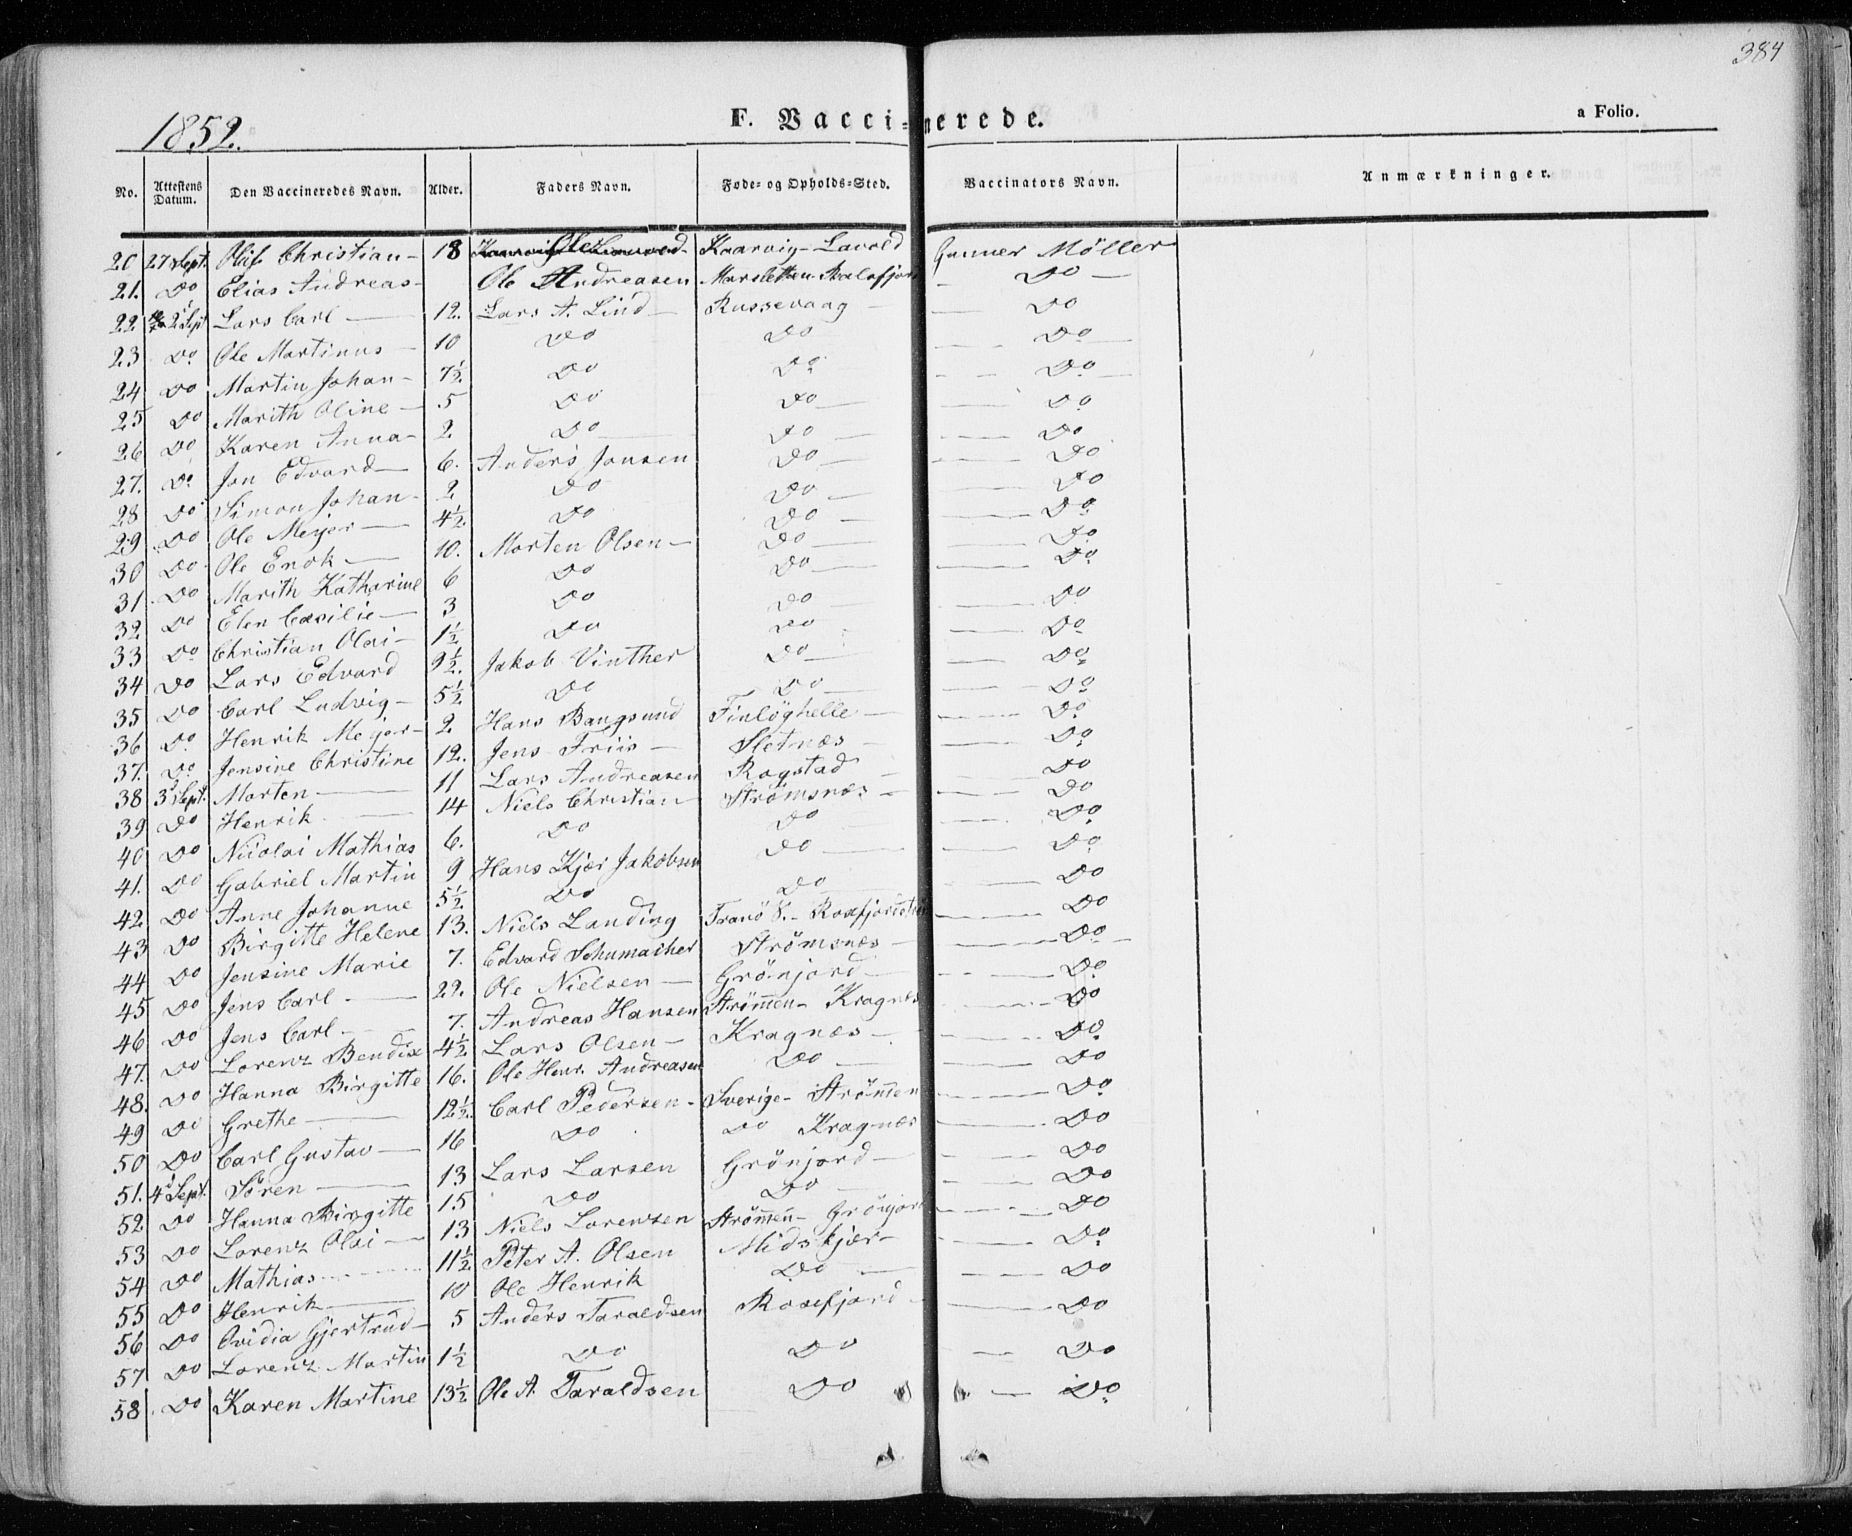 384
1852.
F. Vaccinerede.
a Folio.
No. Attestens Datum. Den Vaccineredes Navn. Alder. Faders Navn. Føde- og Opholds-Sted. Vaccinators Navn. Anmærkninger.
20 27 Sept. Christian 18 Ole Kaarvig - Lavold Gunner Möller
21. Do Elias Andreas Ole Andreasen Do
22 2 Sept Lars Carl 12. Lars A. Lind Russevaag Do
23 Do Ole Martinus 10 Do Do Do
24 Do Martin Johan 7½ Do Do Do
25 Do Marith Oline 5 Do Do Do
26 Do Karen Anna 2 Do Do Do
27. Do Jon Edvard 6. Anders Jonsen Do Do
28 Do Simon Johan 2 Do Do Do
29 Do Ole Meyer 4½ Do Do Do
30 Do Ole Enok 10. Morten Olsen Do Do
31 Do Marith Katharine 6 Do Do Do
32 Do Elen Cæsilie 3 Do Do Do
33 Do Christian Olai 1½ Do Do Do
34 Do Lars Edvard 9½ Jakob Vinther Do Do
35 Do Carl Ludvig 5½ Do Do Do
36 Do Henrik Meyer 2 Hans Bangsund Finlöghelle Do
37. Do Jensine Christine 12. Jens Friis Sletnæs Do
38 3 Sept. Morten 11 Lars Andreasen Rogstad Do
39 Do Henrik 14 Niels Christian Strömsnæs Do
40 Do Nicolai Mathias 6. Do Do Do
41. Do Gabriel Martin 9 Hans Kjær Jakobsen Do Do
42. Do Anne Johanne 5½ Do Do Do
43 Do Birgitte Helene 13. Niels Landing Tranö Do
44 Do Jensine Marie 7. Edvard Schumacher Strömsnæs Do
45 Do Jens Carl 22. Ole Nielsen Grönjord Do
46 Do Jens Carl 7. Andreas Hansen Strömen - Kragnæs Do
47. Do Lorenz Bendix 4½ Lars Olsen Kragnæs Do
48. Do Hanna Birgitte 16. Ole Henr. Andreasen Do Do
49 Do Grethe 12½ Carl Pedersen Sverige - Strömen Do
50 Do Carl Gustav 16 Do Do Kragnæs Do
51. 4 Sept. Sören 13 Lars Larsen Grönjord Do
52 Do Hanna Birgitte 15 Do Do Do
53 Do Lorenz Olai 13 Niels Lorenzen Strömen - Grönjord Do
54 Do Mathias 11½ Peter A. Olsen Midskjær Do
55 Do Henrik 10 Ole Henrik Do Do
56 Do Ovidia Gjertrud 5 Anders Taraldsen Rossfjord Do
57 Do Lorenz Martin 1½ Do Do Do
58 Do Karen Martine 13½ Ole A. Taraldsen Do Do